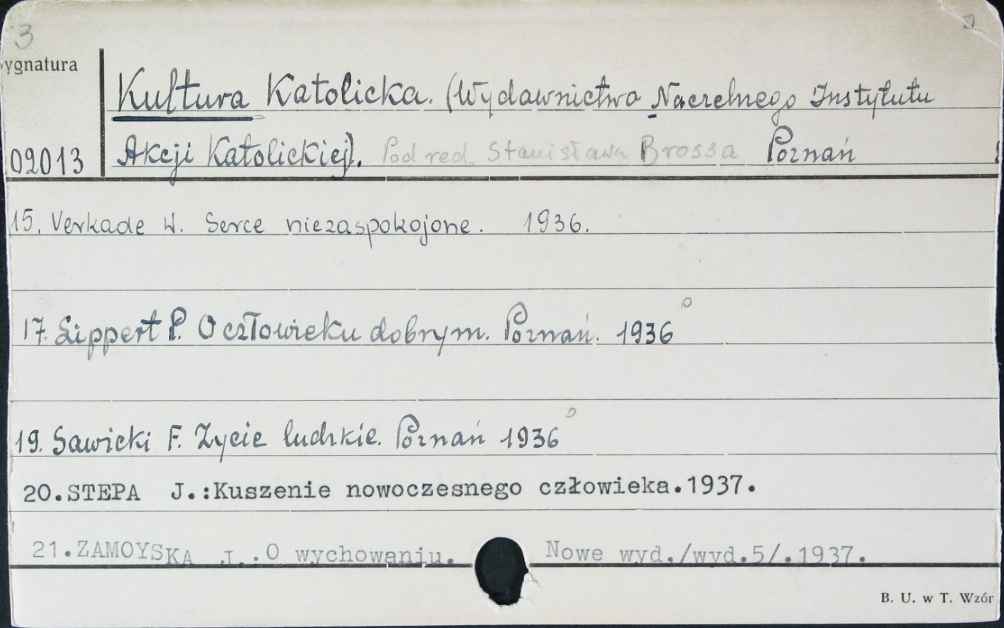 3
ygnatura
Kultura Katolicka. (Wydawnictwo Naczelnego Instytutu
09013 Akcji Katolickiej). Pod red. Stanisława Brossa Poznań
15. Verkade W. Serce niezaspokojone. 1936.
17. Lippert P. O człowieku dobrym. Poznań. 1936
19. Sawicki F. Życie ludzkie. Poznań 1936
20.STEPA J.:Kuszenie nowoczesnego człowieka.1937.
21.ZAMOYSKA J..O wychowaniu. Nowe wyd./wyd.5/.1937.
B. U. w T. Wzór